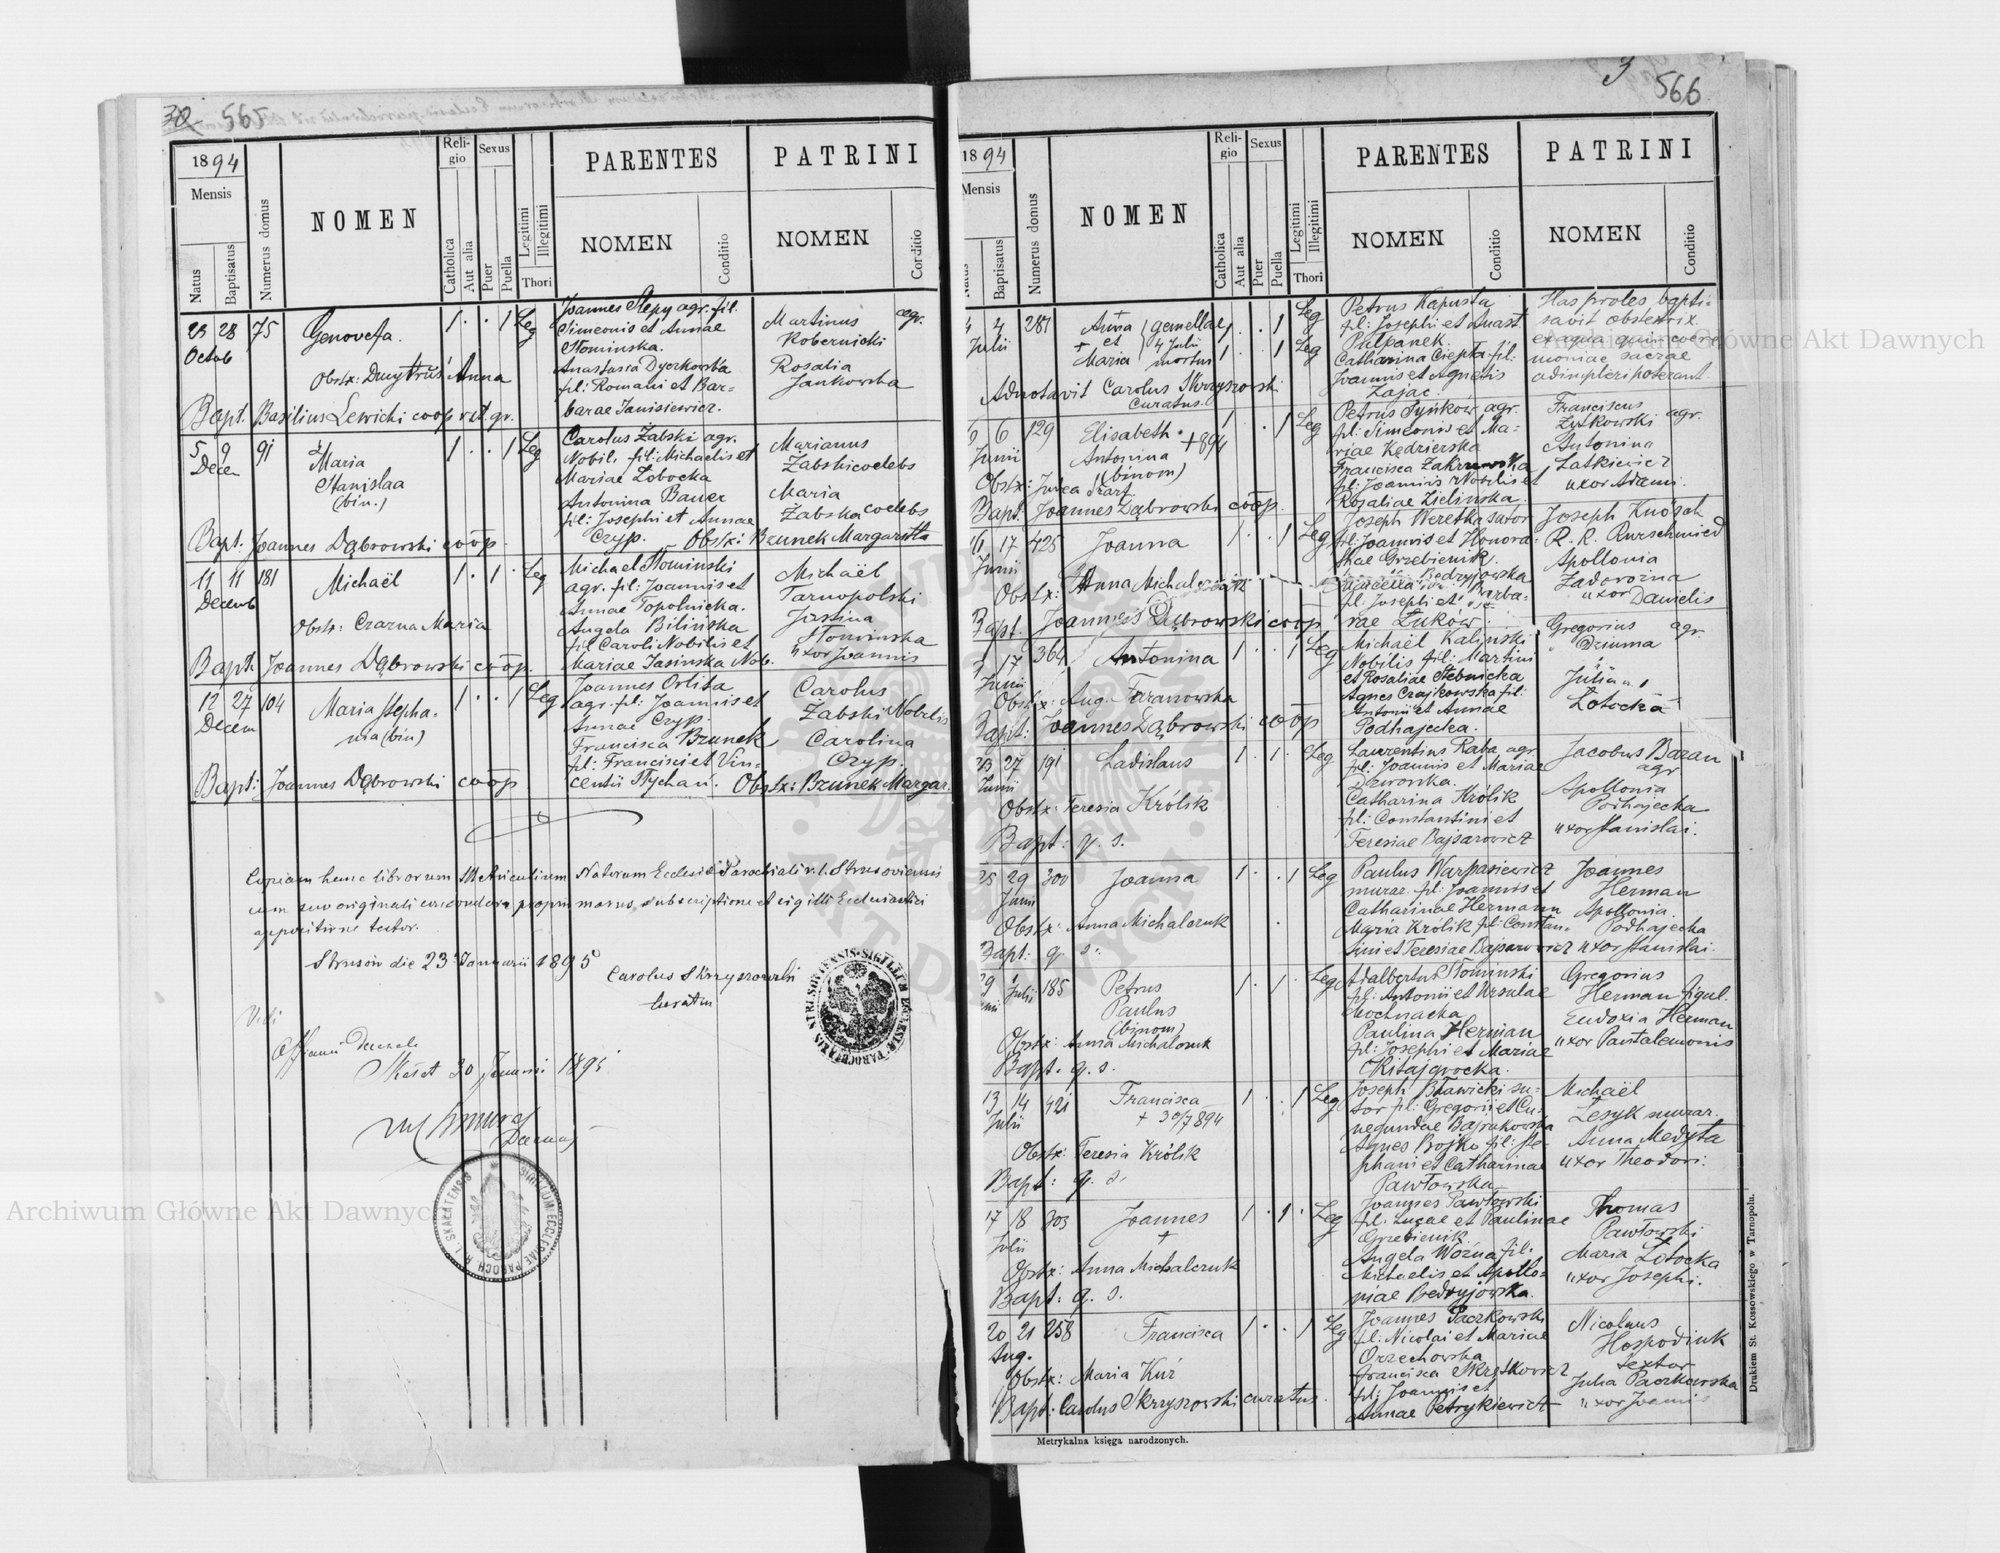 30 565
1894
Mensis
Natus
Baptisatus
Numerus domus
NOMEN
Religio
Catholica
Aut alia
Sexus
Puer
Puella
Legitimi
Illegitimi
Thori
PARENTES
NOMEN
Conditio
PATRINI
NOMEN
Conditio
23 28 75 Genovefa. 1 . . 1 Leg
Octob
Obstx: Dmytrus Anna
Bapt. Basilius Lewicki coop rit. gr.
Joannes Slepy agr. fil.
Simeonis et Annae
Słominska.
Anastasia Dyczkowska
fil: Romani et Bar-
barae Janisiewicz.
Martinus agr.
Kobernicki
Rosalia
Jankowska
5 9 91 Maria 1 . . 1 Leg
Dece
Stanislaa
(bin.)
Bapt: Joannes Dąbrowski coop.
Carolus Żabski agr.
Nobil. fil: Michaelis et
Mariae Łobocka
Antonina Bauer
fil: Josephi et Annae
Czyp. - Obstx: Brunek Margaritta
Marianus
Żabski coelebs
Maria
Żabska coelebs
11 11 181 Michaël 1 . 1 . Leg
Decemb
Obstx: Czarna Maria
Bapt. Joannes Dąbrowski coop.
Michael Słominski
agr. fil: Joannis et
Annae Topolnicka.
Angela Bilińska
fil Caroli Nobilis et
Mariae Jasinska Nob.
Michaël
Tarnopolski
Justina
Słominska
uxor Joannis
12 27 104 Maria Stepha- 1 . . 1 Leg
Decem
nia (bin)
Bapt: Joannes Dąbrowski coop
Joannes Orlita
agr. fil: Joannis et
Annae Czyp.
Francisca Brunek
fil: Francisci et Vin-
centii Stychań. Obstx: Brunek Margar.
Carolus
Żabski Nobilis
Carolina
Czyp.
Copiam hanc librorum Metriculium Natorum Ecclesiae Parochialis r. l. Strusoviensis
cum suo originali concordare propria manus subscriptione et sigilli Ecclesiastici
appositione testor.
Strusów die 23 Januarii 1895
Carolus Skrzyszowski
curatus
Vidi
Officium Decanale
Skałat 30 Januarii 1895
Decanus
566
1894
Mensis
Natus
Baptisatus
Numerus domus
NOMEN
Religio
Catholica
Aut alia
Sexus
Puer
Puella
Legitimi
Illegitimi
Thori
PARENTES
NOMEN
Conditio
PATRINI
NOMEN
Conditio
4 4 281 Anna gemellae 1 . . 1 Leg
Julii et 4 Julii
Maria mortus 1 . . 1 Leg
Adnotavit Carolus Skrzyszowski
Curatus.
Petrus Kapusta
fil: Josephi et Anast.
Pulpanek.
Catharina Ciepta fil:
Joannis et Agnetis
Zając.
Has proles bapti-
savit obstetrix
ex aqua quin coere
moniae sacrae
adimpleri poterant
6 129 Elisabeth +894 1 . . 1 Leg
Junii Antonina
(binom)
Bapt: Joannes Dąbrowski coop.
Petrus Pyńkow agr.
fil: Simeonis et Ma-
riae Kędzierska
Francisca Zakrzewska
fil: Joannis Nobilis et
Rosaliae Zielinska.
Franciscus
Żytkowski agr.
Antonina
Łatkiewicz
uxor Adami.
17 425 Joanna 1 . . 1 Leg
Junii
Obstx: Anna Michalczuk
Bapt. Joannes Dąbrowski coop
Joseph Weretka sutor
fil: Joannis et Honora-
thae Grzebienik.
Bedryjowska
fil: Josephi et Barba-
rae Żuków.
Joseph Knösch
R. R. Kurschmied
Apollonia
Zadorożna
uxor Danielis
17 364 Antonina 1 . . 1 Leg
Junii
Obstx: Aug. Taranowska
Bapt: Joannes Dąbrowski coop
Michaël Kalinski
Nobilis fil: Martini
et Rosaliae Stebnicka
Agnes Czajkowska fil:
Antonii et Annae
Podhajecka.
Gregorius agr.
Dziuma
Łotocka
23 27 191 Ladislaus 1 . 1 . Leg
Junii
Obstx: Teresia Królik
Bapt: q. s.
Laurentius Raba agr
fil: Joannis et Mariae
Catharina Królik
fil: Constantini et
Teresiae Bajsarowicz
Jacobus Baran
agr
Apollonia
Podhajecka
uxor Stanislai.
25 29 300 Joanna 1 . . 1 Leg
Junii
Obstx: Anna Michalczuk
Bapt: q. s.
Paulus Warpasiewicz
murar. fil: Joannis et
Catharinae Hermann
Maria Krolik fil: Constan-
tini et Teresiae Bajsarowicz
Joannes
Herman
Apollonia.
Podhajecka
uxor Stanislai.
29 Julii 185 Petrus 1 . 1 . Leg
Paulus
(binom)
Obstx: Anna Michalczuk
Bapt. q. s.
Adalbertus Słominski
fil: Antonii et Ursulae
Mochnacka
Paulina Herman
fil: Josephi et Mariae
Kitajgrocka.
Gregorius
Herman figul.
Eudoxia Herman
uxor Pantalemonis
13 14 421 Francisca 1 . . 1 Leg
Julii + 30/7 894
Obstx: Teresia Królik
Bapt: q. s.
Joseph Bławicki su-
tor fil: Gregorii et Cu-
negundae Bajrakowska
Agnes Bojko fil: Ste-
phani et Catharinae
Pawłowska
Michaël
Lesyk murar.
Anna Medyta
uxor Theodori.
17 18 303 Joannes 1 . 1 . Leg
Julii +
Obstx: Anna Michalczuk
Bapt: q. s.
Joannes Pawłowski
fil. Lucae et Paulinae
Grzebienik
Angela Woźna fil.
Michaelis et Apollo-
niae Bedryjowska.
Thomas
Pawłowski
Maria Łotocka
uxor Josephi.
20 21 258 Francisca 1 . . 1 Leg
Aug.
Obstx: Maria Kuź
Bapt: Carolus Skrzyszowski curatus.
Joannes Paczkowski
fil: Nicolai et Mariae
Orzechowska
Francisca Skrętkowicz
fil: Joannis et
Annae Petrykiewicz
Nicolaus
Hospodiuk
textor
Julia Paczkowska
uxor Joannis
Metrykalna księga narodzonych.
Drukiem St. Kossowskiego w Tarnopolu.
Archiwum Główne Akt Dawnych
Archiwum Główne Akt Dawnych